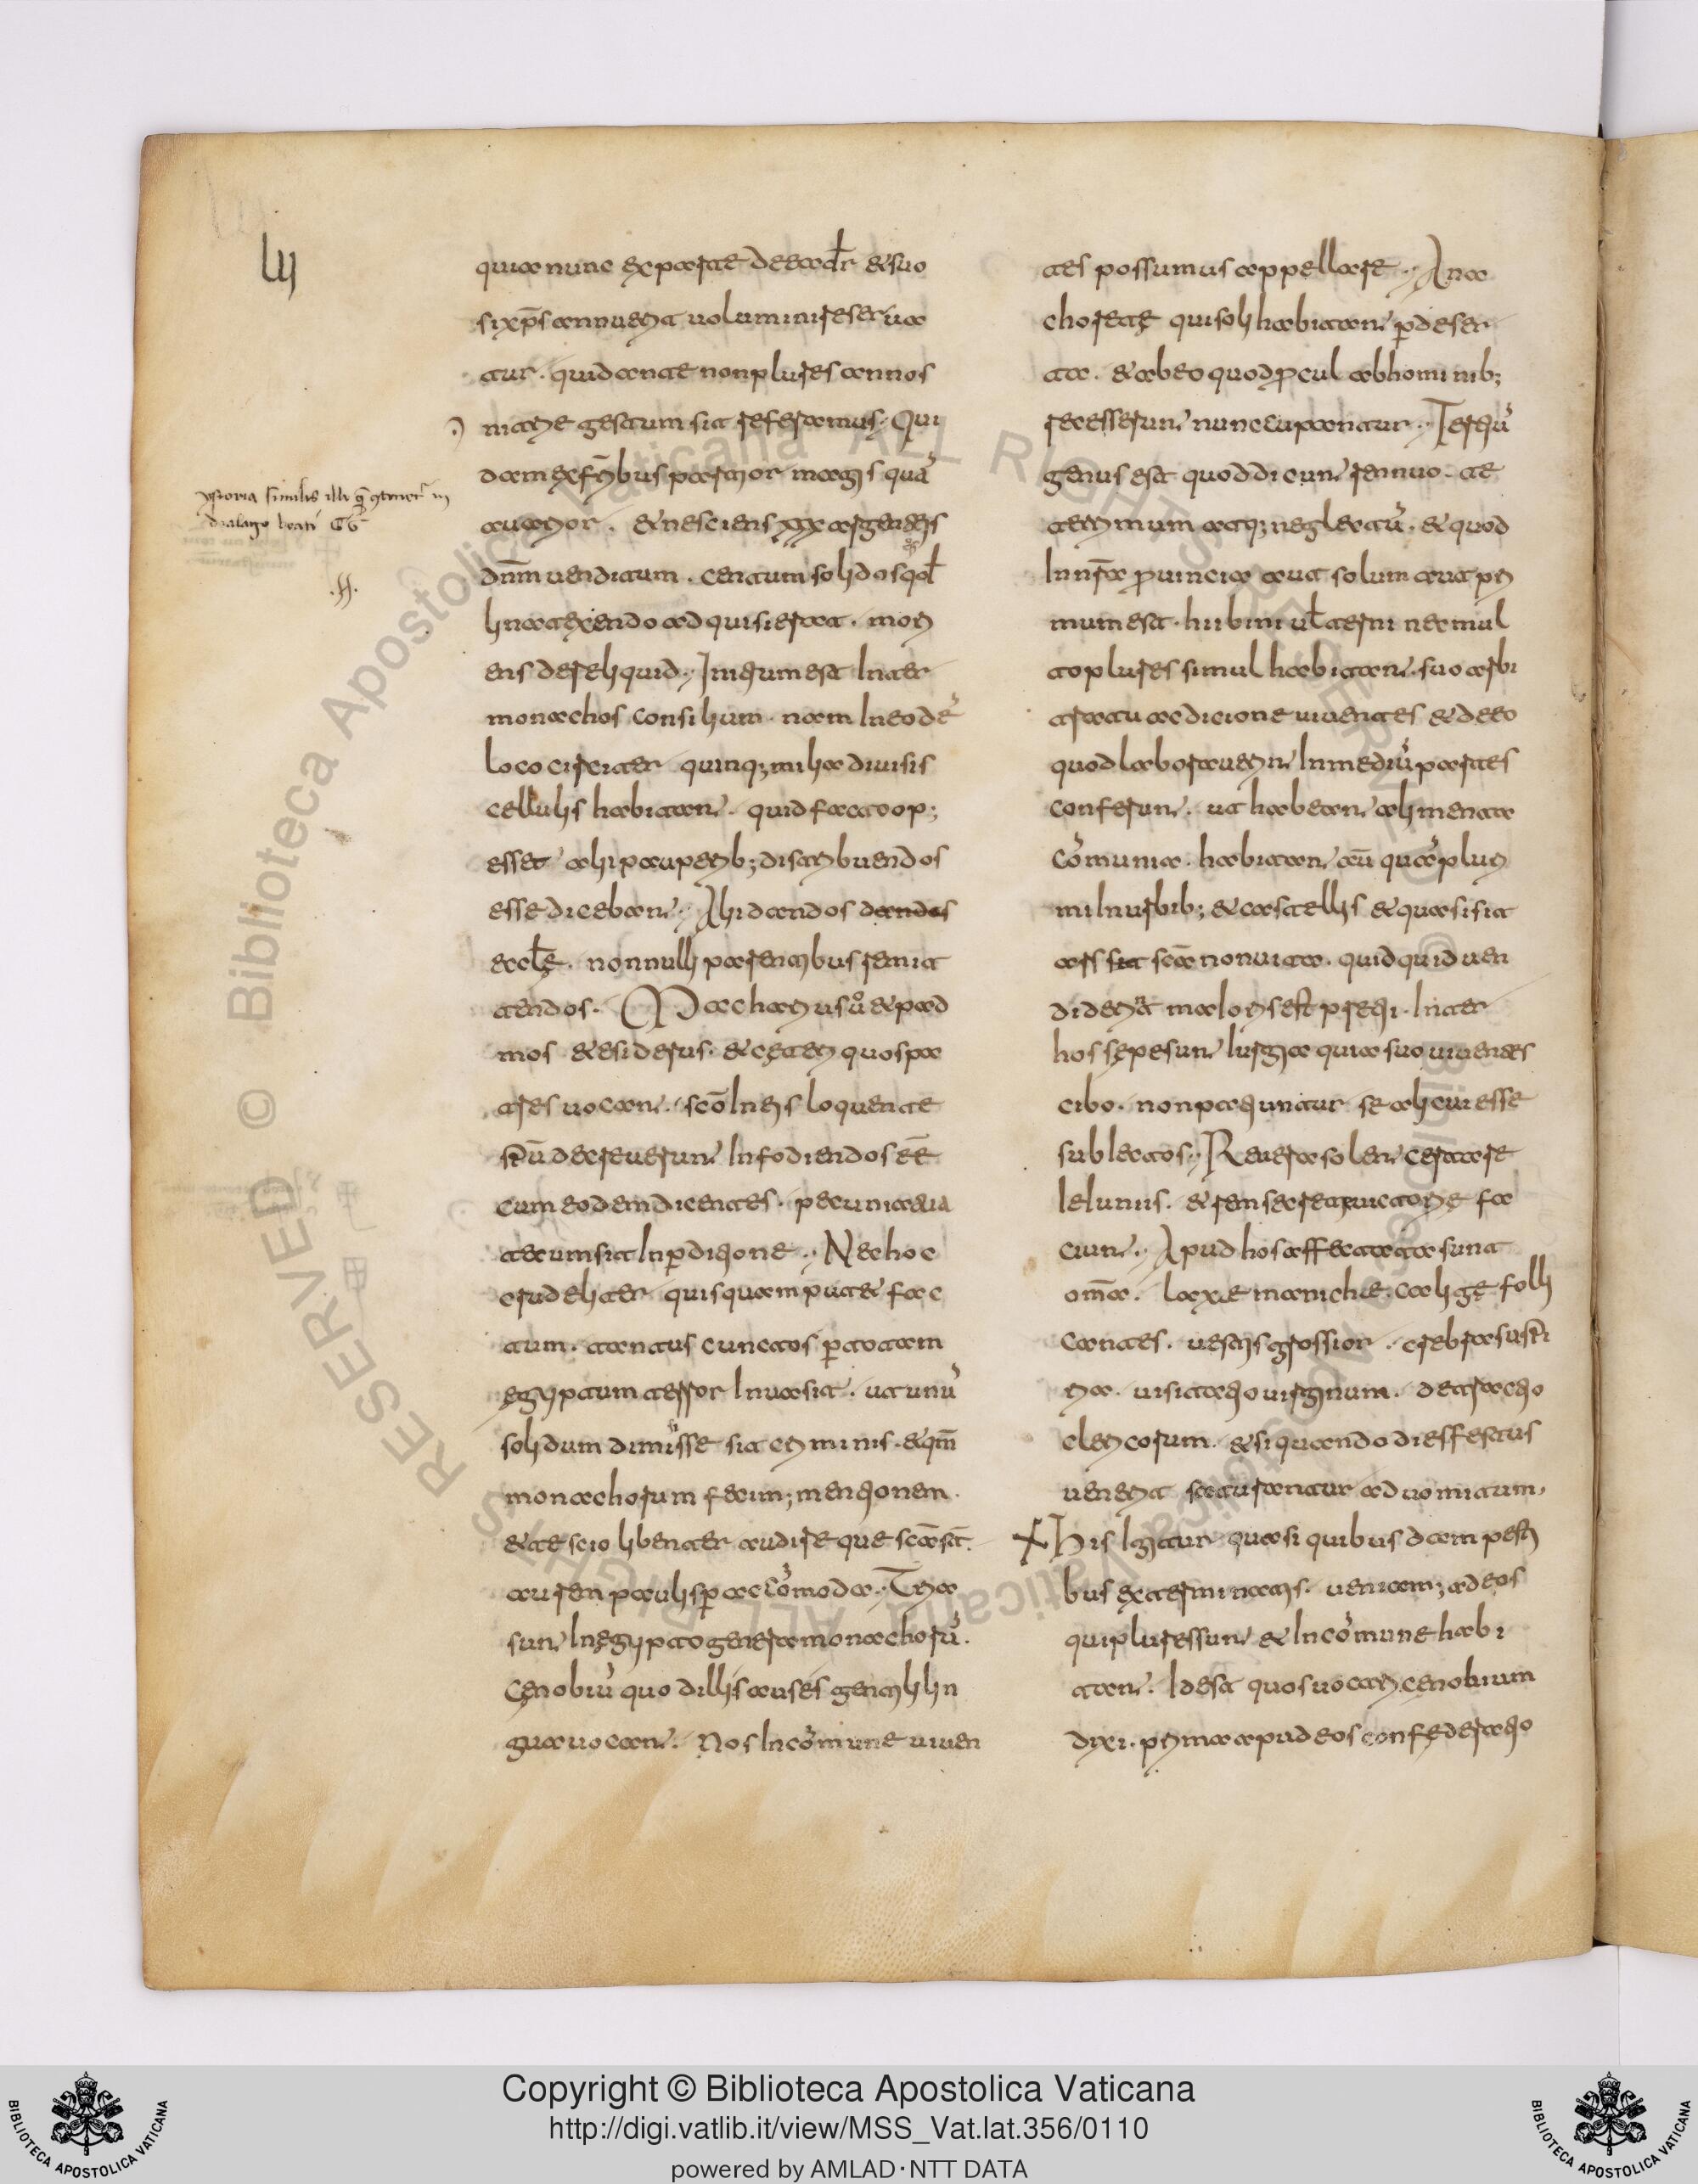 LII
quia nunc ex parte de
si xps annuerit uolumini reserua
tur. quid ante non plures annos
nitrie gestum sit referamus. Qui
dam ex frībus partior magis quā
auarior. et nesciens xxx argenteis
dnm uenditum. centum solidos q̊s
lina texendo adquisierat. mori
ens dereliquid. Initium est inter
monachos consilium. nam in eodē
loco circiter quinq; milia diuisis
cellulis habitant. quid facto op;
esset alii pauperib; distribuendos
esse dicebant. Alii dandos dandos
eccle. nonnulli parentibus remit
tendos. Macharius uo et pad
mos et esiderus. et ceteri quos pa
tres uocant. scō in eis loquente
spū decreuerunt infodiendos eē
cum eodem dicentes. pecunia tua
tecum sit in pditione. Nec hoc
crudeliter quisquam putet fac
tum. tantus cunctos p totam
egyptum terror inuasit. ut unū
solidum dimisisse sit criminis. et qm
monachorum fecim; mentionem.
et te scio libenter audire que scā sūt.
aurem paulisp accōmoda. Tria
sunt in egypto genera monachorū.
Cenobiū quod illi sauses gentili lin
gua uocant. Nos in cōmune uiuen
tes possumus appellare. Ana
chorete qui soli habitant p deser
ta. et ab eo quod pcul ab hominib;
recesserunt nuncupantur. Tertiū
genus est quod dicunt remnuo. te
terrimum atq; neglectū. et quod
in nra puincia aut solum aut pri
mum est. hii bini ul terni nec mul
to plures simul habitant. suo arbi
tratu ac dicione uiuentes et de eo
quod laborauerint in mediū partes
conferunt. ut habeant alimenta
cōmunia. habitant aū quā pluri
mi in urbib; et castellis et quasi sit
ars sit scā non uita. quidquid uen
diderint maioris est ptii. Inter
hos sepe sunt iurgia quia suo uiuentes
cibo. non patiuntur se alicui esse
subiectos. Reuera solent certare
ieiuniis. et rem secreti uictorie fa
ciunt. Apud hos affectata sunt
omīa. laxe maniche. calige folli
cantes. uestis grossior. crebra suspi
ria. uisitatio uirginum. detractio
clericorum. et si quando dies festus
uenerit saturantur ad uomitum.
His igitur quasi quibusdam pesti
bus exterminatis. ueniam; ad eos
qui plures sunt et in cōmune habi
tant. Id est quos uocari cenobium
dixi. prima apud eos confederatio
Copyright © Biblioteca Apostolica Vaticana
http://digi.vatlib.it/view/MSS_Vat.lat.356/0110
powered by AMLAD · NTT DATA
BIBLIOTECA APOSTOLICA VATICANA
BIBLIOTECA APOSTOLICA VATICANA